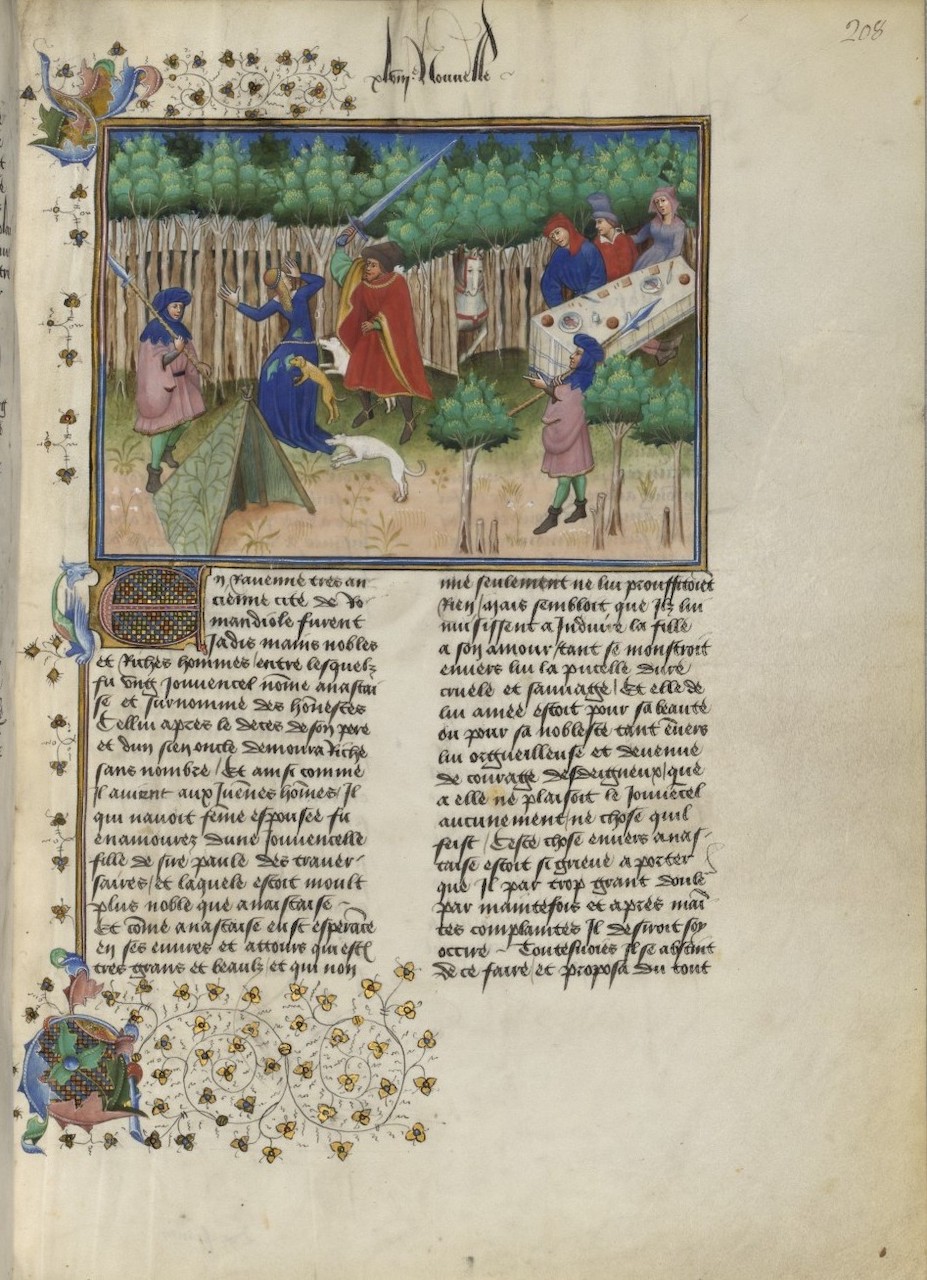 208
xlviije Nouuelle
En Rauenne tres an
cienne cite de Ro-
mandiole furent
Jadis mains nobles
et Riches hommes / entre lesquelz
fu vng Jouuencel nome anastai
se et surnomme des honestes
Cellui apres le deces de son pere
et dun sien oncle demoura Riche
sans nombre / Et ainsi comme
Il auient aux Juenes homes / Il
qui nauoit feme espousee fu
enamourez dune Jouuencelle
fille de sire paule des trauer-
saires / et laquele estoit moult
plus noble que anaistaise ~
Et come anastaise eust esperace
en ses euures et attours qui estoient
tres grans et beaulz et qui non
mie seulement ne lui prouffitoient
Rien / mais sembloit que Ilz lui
nuisissent a Induire la fille
a son amour / tant se monstroit
enuers lui la pucelle dure
cruele et sauuage / Et elle de
lui amee estoit pour sa beaute
ou pour sa noblesce tant euers
lui orgueilleuse et deuenue
de courage desdeigneux / que
a elle ne plaisoit le Jouuecel
aucunement / ne chose quil
feist / Ceste chose enuers anas-
taise estoit si grieue a porter
que Il par trop grant doule
par maintefois et apres mai
tes complaintes Il desiroit soy
occire ~ Toutesuoies Il se abstint
de ce faire / et proposa du tout